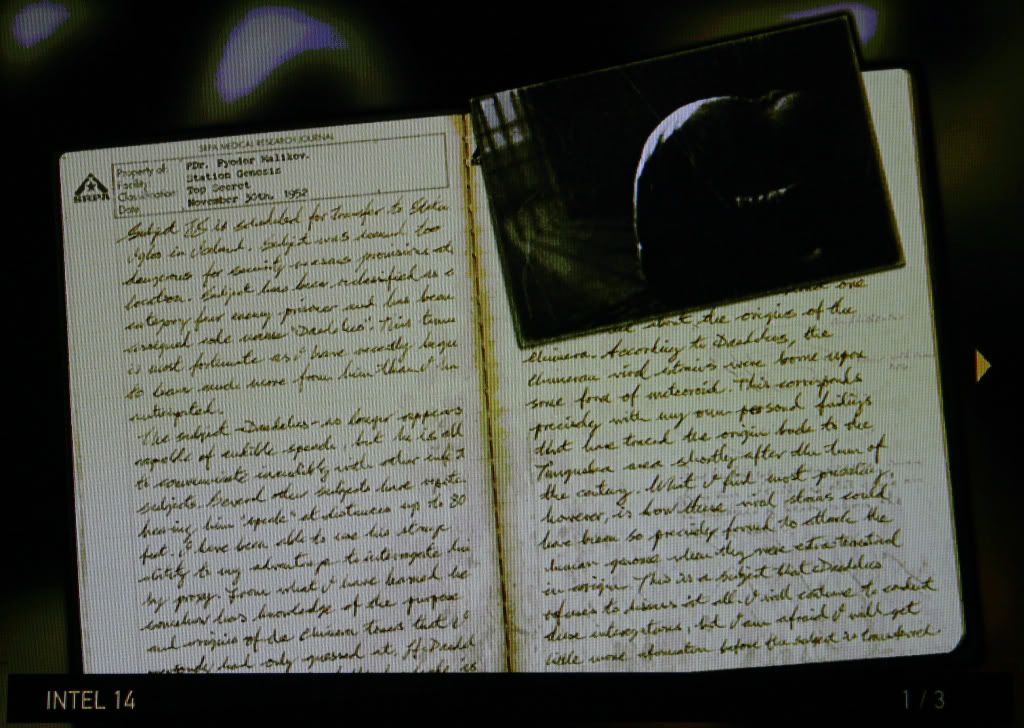 SRPA MEDICAL RESEARCH JOURNAL
SRPA
Property of: PDr. Fyodor Malikov.
Facility: Station Genesis
Classification: Top Secret
Date: November 30th, 1952
Subject is scheduled for transfer to Station
Igloo in Iceland. Subject was deemed too
dangerous for security reasons provisions at
location. Subject has been reclassified as a
category four enemy prisoner and has been
assigned code name "Daedalus". This time
is most fortunate as I have recently begun
to learn much more from him than I
anticipated.
The subject -Daedalus- no longer appears
capable of audible speech, but he is able
to communicate inaudibly with other
subjects. Several other subjects have
hearing him "speak" at distances up to 30
feet. I have been able to use his strange
ability to my advantage to interrogate him
by proxy. From what I have learned he
somehow has knowledge of the purpose
and origins of the Chimera that I
had only guessed at. If
one
about, the origins of the
Chimera. According to Daedalus, the
Chimeran viral strains were borne upon
some form of meteoroid. This corresponds
precisely with my own personal findings
that have traced the origin back to the
Tunguska area shortly after the turn of
the century. What I find most
however, is how these viral strains could
have been so precisely formed to attack the
human genome when they were extraterrestrial
in origin. This is a subject that Daedalus
refuses to discuss at all. I will continue to conduct
these interrogations, but I am afraid I will get
little more information before the subject is transferred.
INTEL 14
1 / 3